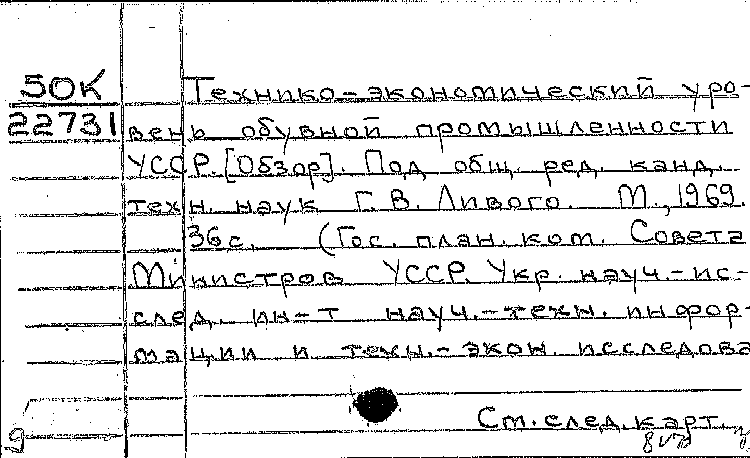 50К
22731
Технико-экономический уро-
вень обувной промышленности
УССР. [Обзор]. Под общ. ред. канд.
техн. наук Г. В. Ливого. М., 1969.
36с. (Гос. план. ком. Совета
Министров УССР. Укр. науч.-ис-
след. ин-т науч.-техн. инфор-
мации и техн.-экон. исследова
См. след. карт.
g